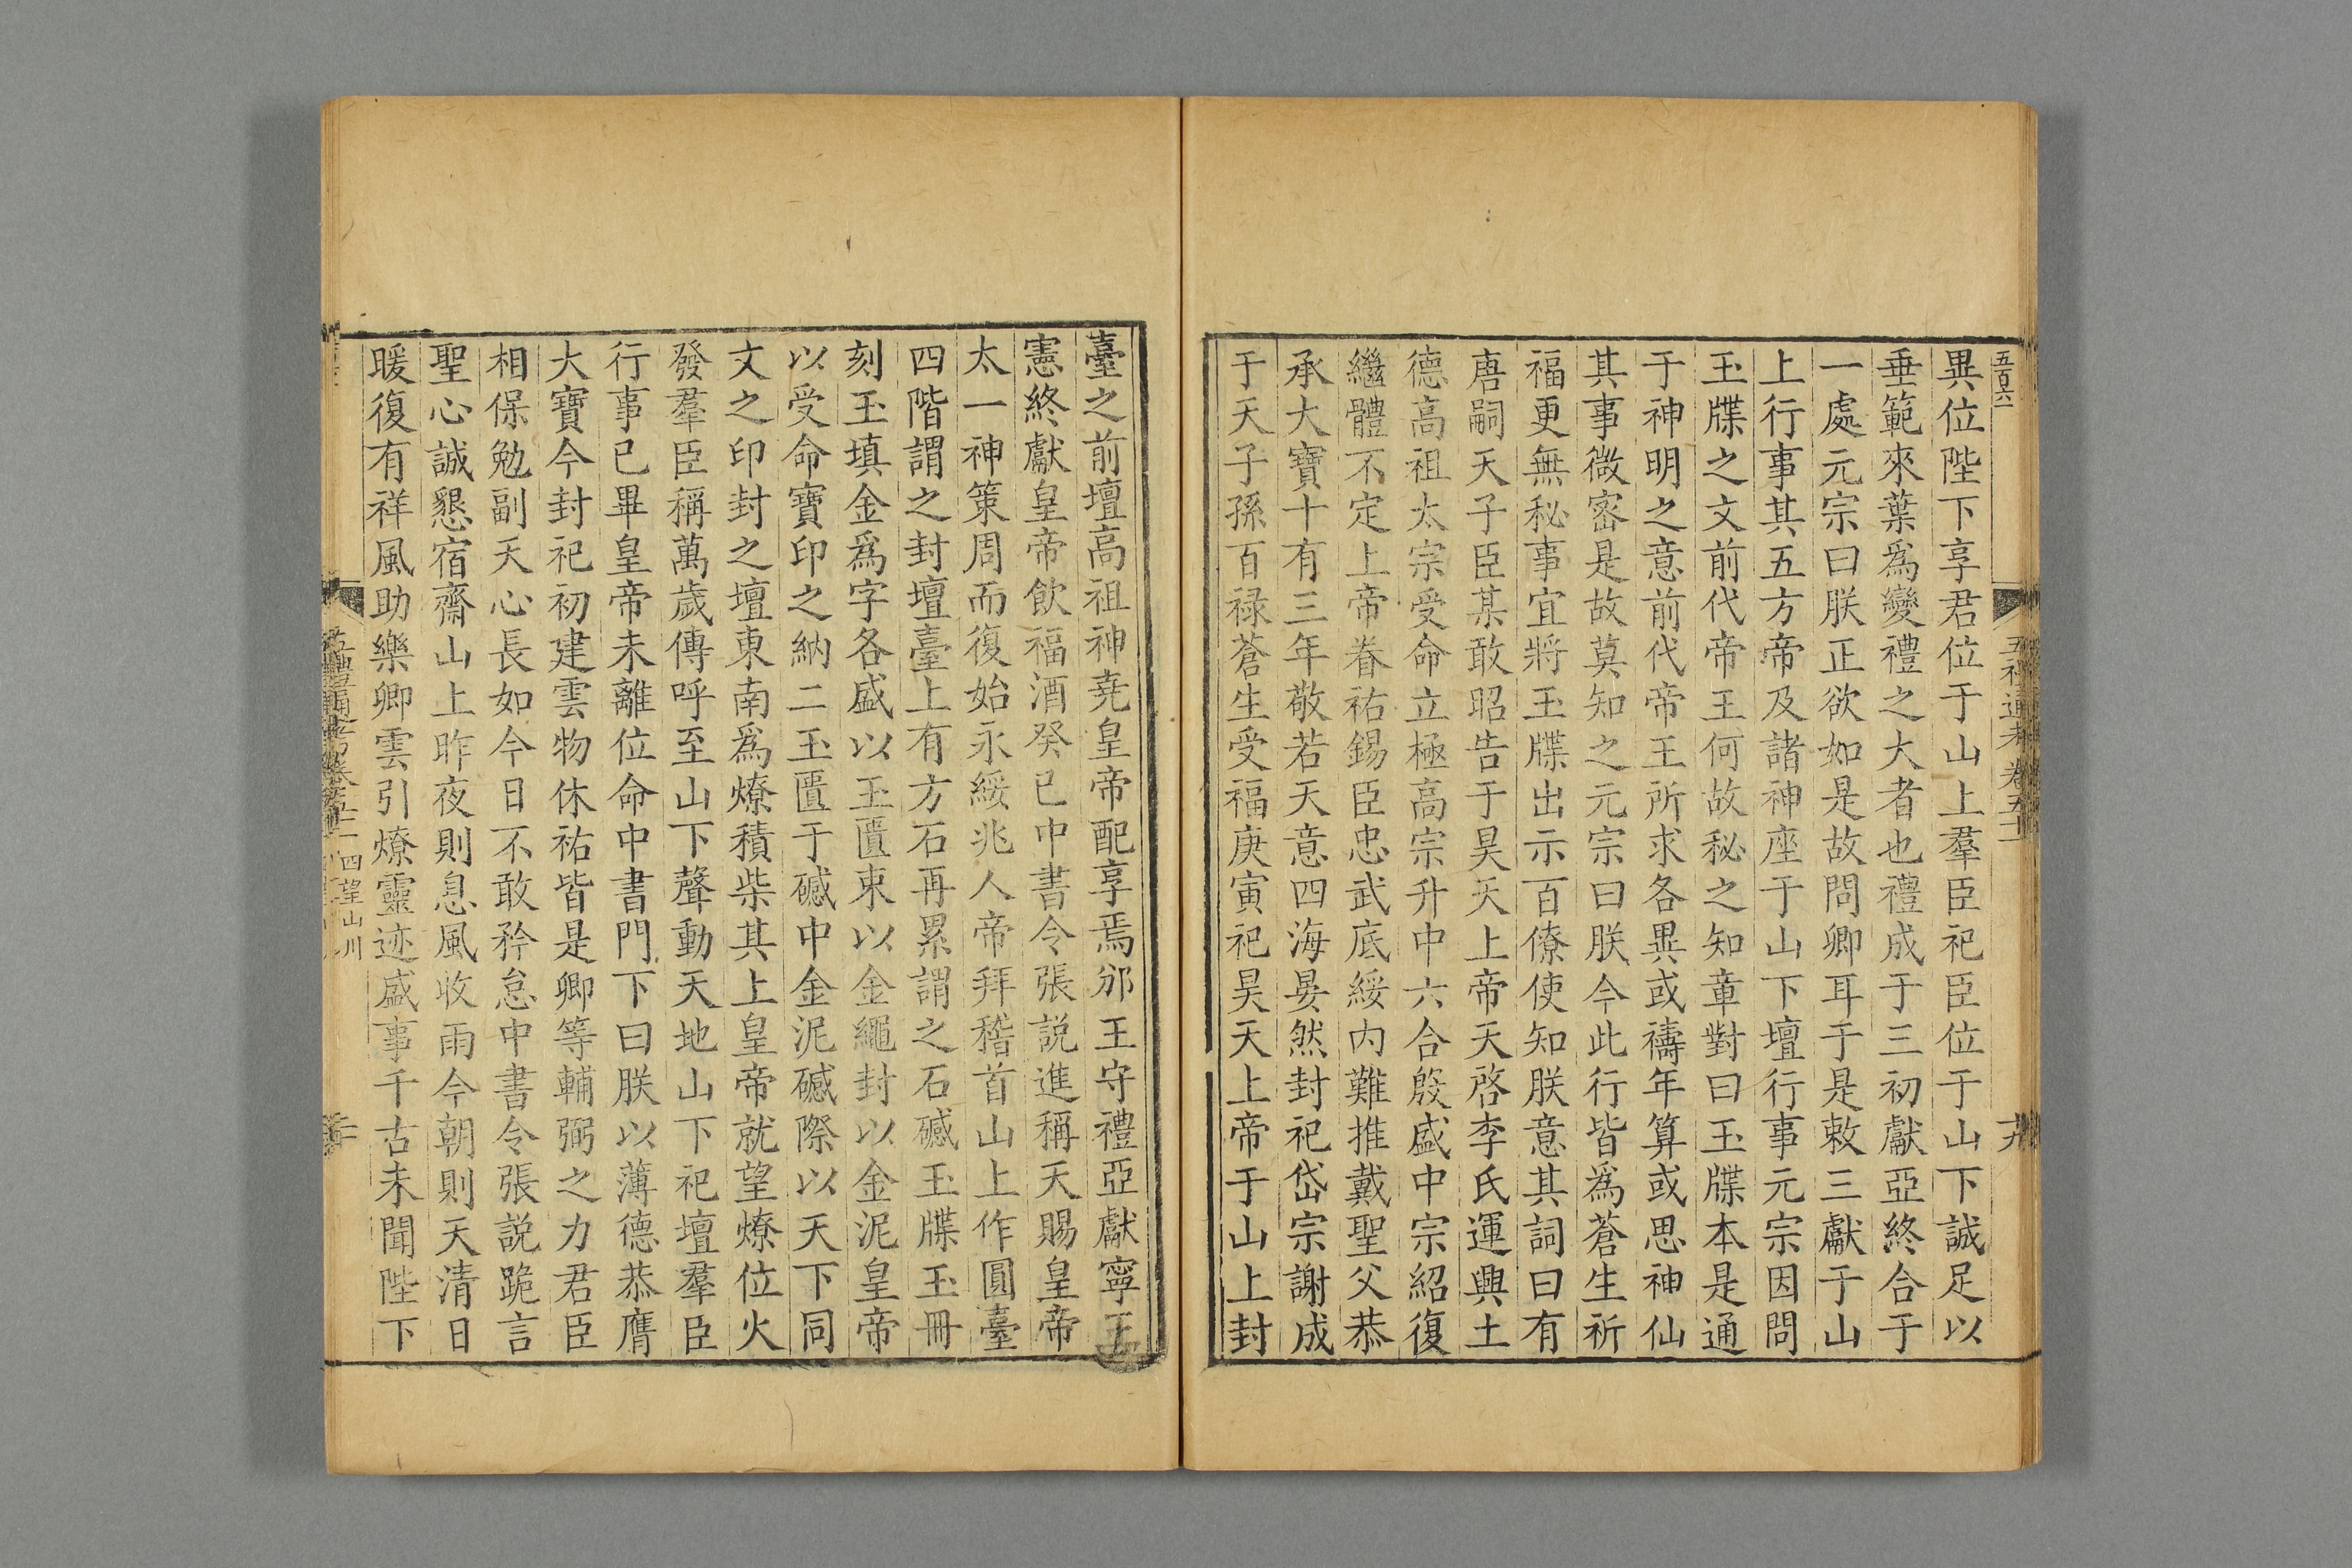 五百六
五禮通考卷五十一
異位陛下享君位于山上羣臣祀臣位于山下誠足以
垂範來葉爲變禮之大者也禮成于三初獻亞終合于
一處元宗曰朕正欲如是故問卿耳于是敕三獻于山
上行事其五方帝及諸神座于山下壇行事元宗因問
玉牒之文前代帝王何故秘之知章對曰玉牒本是通
于神明之意前代帝王所求各異或禱年算或思神仙
其事微密是故莫知之元宗曰朕今此行皆爲蒼生祈
福更無秘事宜將玉牒出示百僚使知朕意其詞曰有
唐嗣天子臣某敢昭告于昊天上帝天啓李氏運興土
德高祖太宗受命立極高宗升中六合殷盛中宗紹復
繼體不定上帝眷祐錫臣忠武底綏内難推戴聖父恭
承大寶十有三年敬若天意四海晏然封祀岱宗謝成
于天子孫百禄蒼生受福庚寅祀昊天上帝于山上封
臺之前壇高祖神堯皇帝配享焉邠王守禮亞獻寧王
憲終獻皇帝飲福酒癸巳中書令張説進稱天賜皇帝
太一神策周而復始永綏兆人帝拜稽首山上作圓臺
四階謂之封壇臺上有方石再累謂之石䃭玉牒玉冊
刻玉填金爲字各盛以玉匱束以金繩封以金泥皇帝
以受命寶印之納二玉匱于䃭中金泥䃭際以天下同
文之印封之壇東南爲燎積柴其上皇帝就望燎位火
發羣臣稱萬歲傳呼至山下聲動天地山下祀壇羣臣
行事已畢皇帝未離位命中書門下曰朕以薄德恭膺
大寶今封祀初建雲物休祐皆是卿等輔弼之力君臣
相保勉副天心長如今日不敢矜怠中書令張説跪言
聖心誠懇宿齋山上昨夜則息風收雨今朝則天清日
暖復有祥風助樂卿雲引燎靈迹盛事千古未聞陛下
四望山川